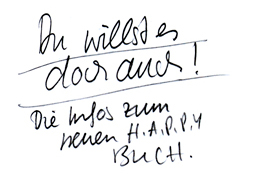 Du willst es
doch auch!
Die Infos zum
neuen H.A.P.P.Y
BUCH.